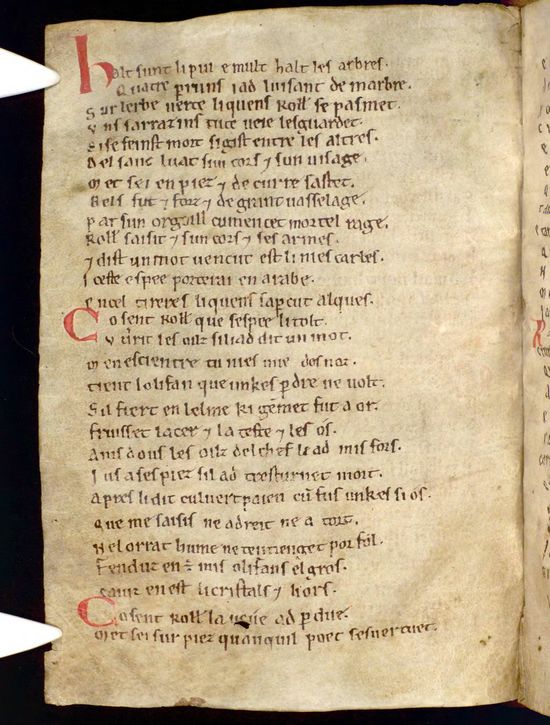 halt sunt li pui e mult halt les arbres.
Quatre perruns i ad luisant de marbre.
Sur lerbe verte li quens Roll se pasmet.
Uns sarrazins tute veie lesguardet.
Si se feinst mort si gist entre les altres.
Del sanc luat sun cors ⁊ sun visage.
Met sei en piez ⁊ de curre sastet.
Bels fut ⁊ forz ⁊ de grant vasselage.
Par sun orguill cumencet mortel rage.
Roll saisit ⁊ sun cors ⁊ ses armes.
⁊ dist un mot vencut est li nies carles.
Iceste espee porterai en arabe.
En cel tireres li quens saꝑcut alques.
Co sent Roll que sespee li tolt.
Uv̉rit les oilz si li ad dit un mot.
Men escientre tu nies mie des noz.
Tient lolifan que unkes ꝑdre ne volt.
Sil fiert en lelme ki gemet fut a or.
Fruisset lacer ⁊ la teste ⁊ les os.
Amsdous les oilz del chef li ad mis fors.
Jus a ses piez sil ad tresturnet mort.
Apres li dit culvert paien cū fus unkes si os.
Que me saisis ne a dreit ne a tort.
Ne lorrat hume ne ten tienget por fol.
Fenduz en ē mis olifans el gros.
Caiuz en est li cristals ⁊ li ors.
Co sent Roll la veue ad ꝑdue.
Met sei sur piez quanquil poet sesvertuet.